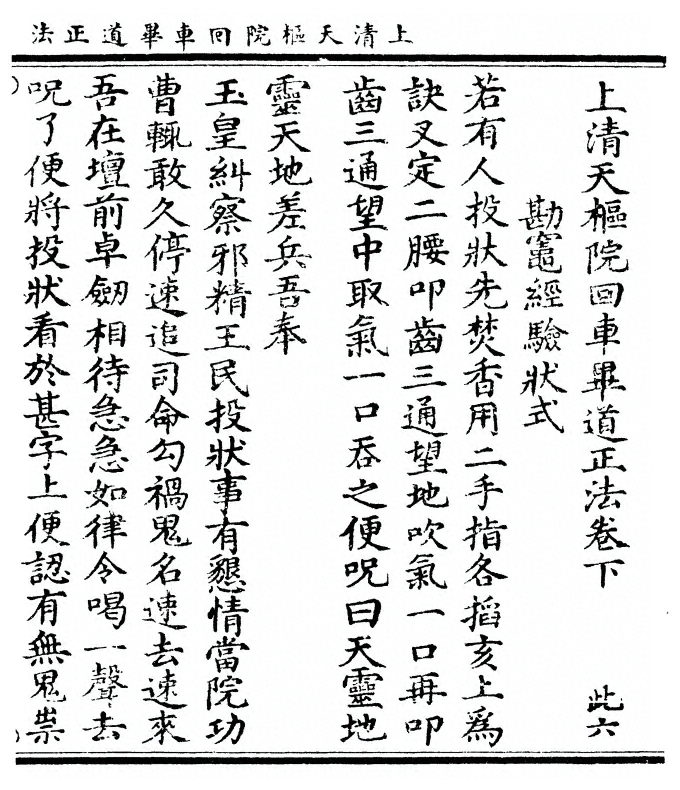 上清天樞院回車畢道正法
上清天樞院回車畢道正法卷下 此六
勘竈經驗狀式
若有人投狀先焚香用二手指各搯亥上爲
訣叉定二腰叩齒三通望地吹氣一口再叩
齒三通望中取氣一口吞之便呪曰天靈地
靈天地差兵吾奉
玉皇糾察邪精王民投狀事有懇情當院功
曹輒敢久停速追司命勾禍鬼名速去速來
吾在壇前卓劒相待急急如律令喝一聲去
呪了便將投狀看於甚字上便認有無鬼祟